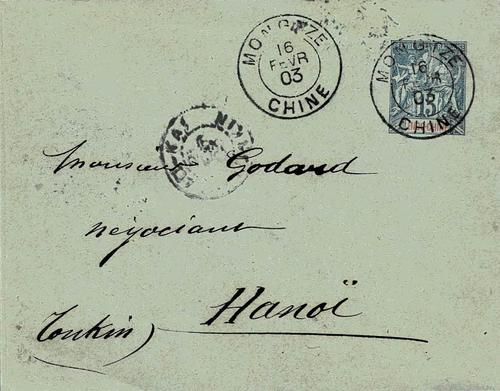 MONGTZE
16
FEVR
03
CHINE
MONGTZE
16
03
CHINE
15
Monsieur Godard
négociant
Hanoï
Tonkin)